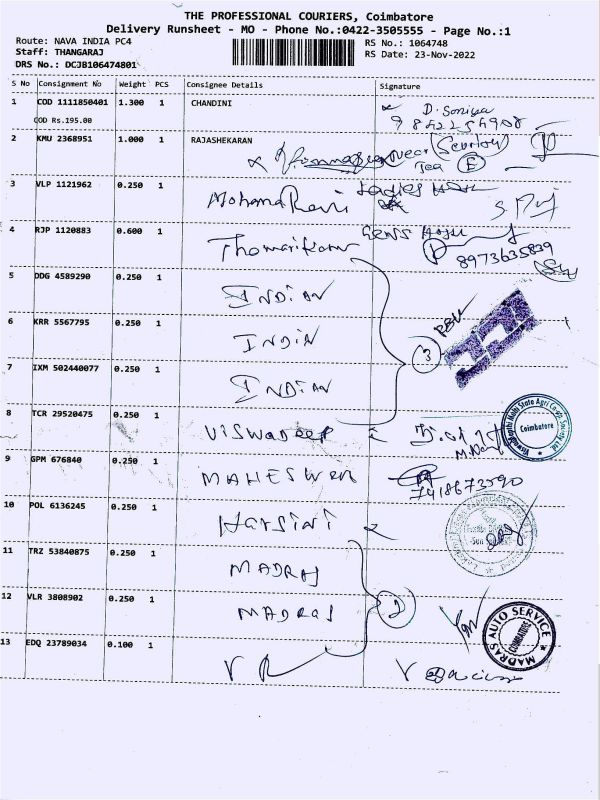 THE PROFESSIONAL COURIERS, Coimbatore
Delivery Runsheet - MO - Phone No.:0422-3505555 - Page No.:1
Route: NAVA INDIA PC4 RS No.: 1064748
Staff: THANGARAJ RS Date: 23-Nov-2022
DRS No.: DCJB106474801
S No Consignment No Weight PCS Consignee Details Signature
1 COD 1111850401 1.300 1 CHANDINI D. Soniya
COD Rs.195.00
2 KMU 2368951 1.000 1 RAJASHEKARAN (Security)
Tea
3 VLP 1121962 0.250 1 Mohana Rani Ladies
4 RJP 1120883 0.600 1 Gents
8973635839
5 DDG 4589290 0.250 1 INDIAN
6 KRR 5567795 0.250 1 INDIN 3
7 IXM 502440077 0.250 1 INDIAN
8 TCR 29520475 0.250 1 VISWADEEP Coimbatore
9 GPM 676840 0.250 1 MAHESWRN 7418673590
10 POL 6136245 0.250 1 Harsini
11 TRZ 53840875 0.250 1 MADRAS
12 VLR 3808902 0.250 1 MADRAS 2 MADRAS AUTO SERVICE COIMBATORE
13 EDQ 23789034 0.100 1 V R